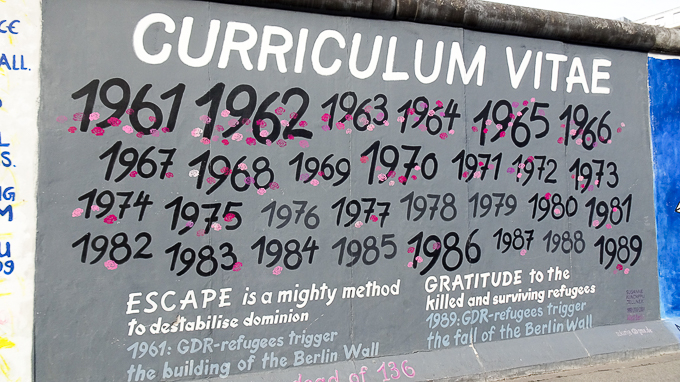 CURRICULUM VITAE
1961 1962 1963 1964 1965 1966
1967 1968 1969 1970 1971 1972 1973
1974 1975 1976 1977 1978 1979 1980 1981
1982 1983 1984 1985 1986 1987 1988 1989
ESCAPE is a mighty method
to destabilise dominion
1961: GDR-refugees trigger
the building of the Berlin Wall
GRATITUDE to the
killed and surviving refugees
1989: GDR-refugees trigger
the fall of the Berlin Wall
dead of 136
ALL.